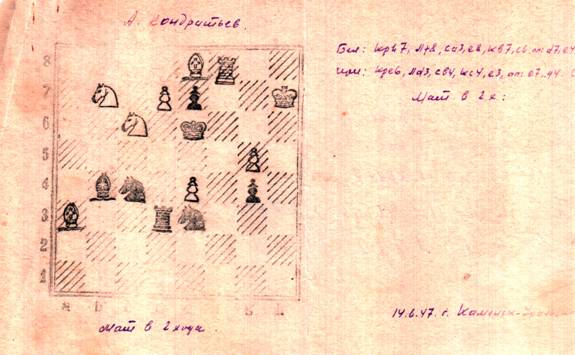 А. Кондратьев.
Бел: Крh7, Лf8, Са3, е8, Кb7, с6, пп: d7, е4
Чёрн: Кре6, Лd3, Сb4, Кс4, е3, пп: е7, g4.
Мат в 2 х:
8
7
6
5
4
3
2
1
a b g h
Мат в 2 хода.
14.6.47. г. Каменск-